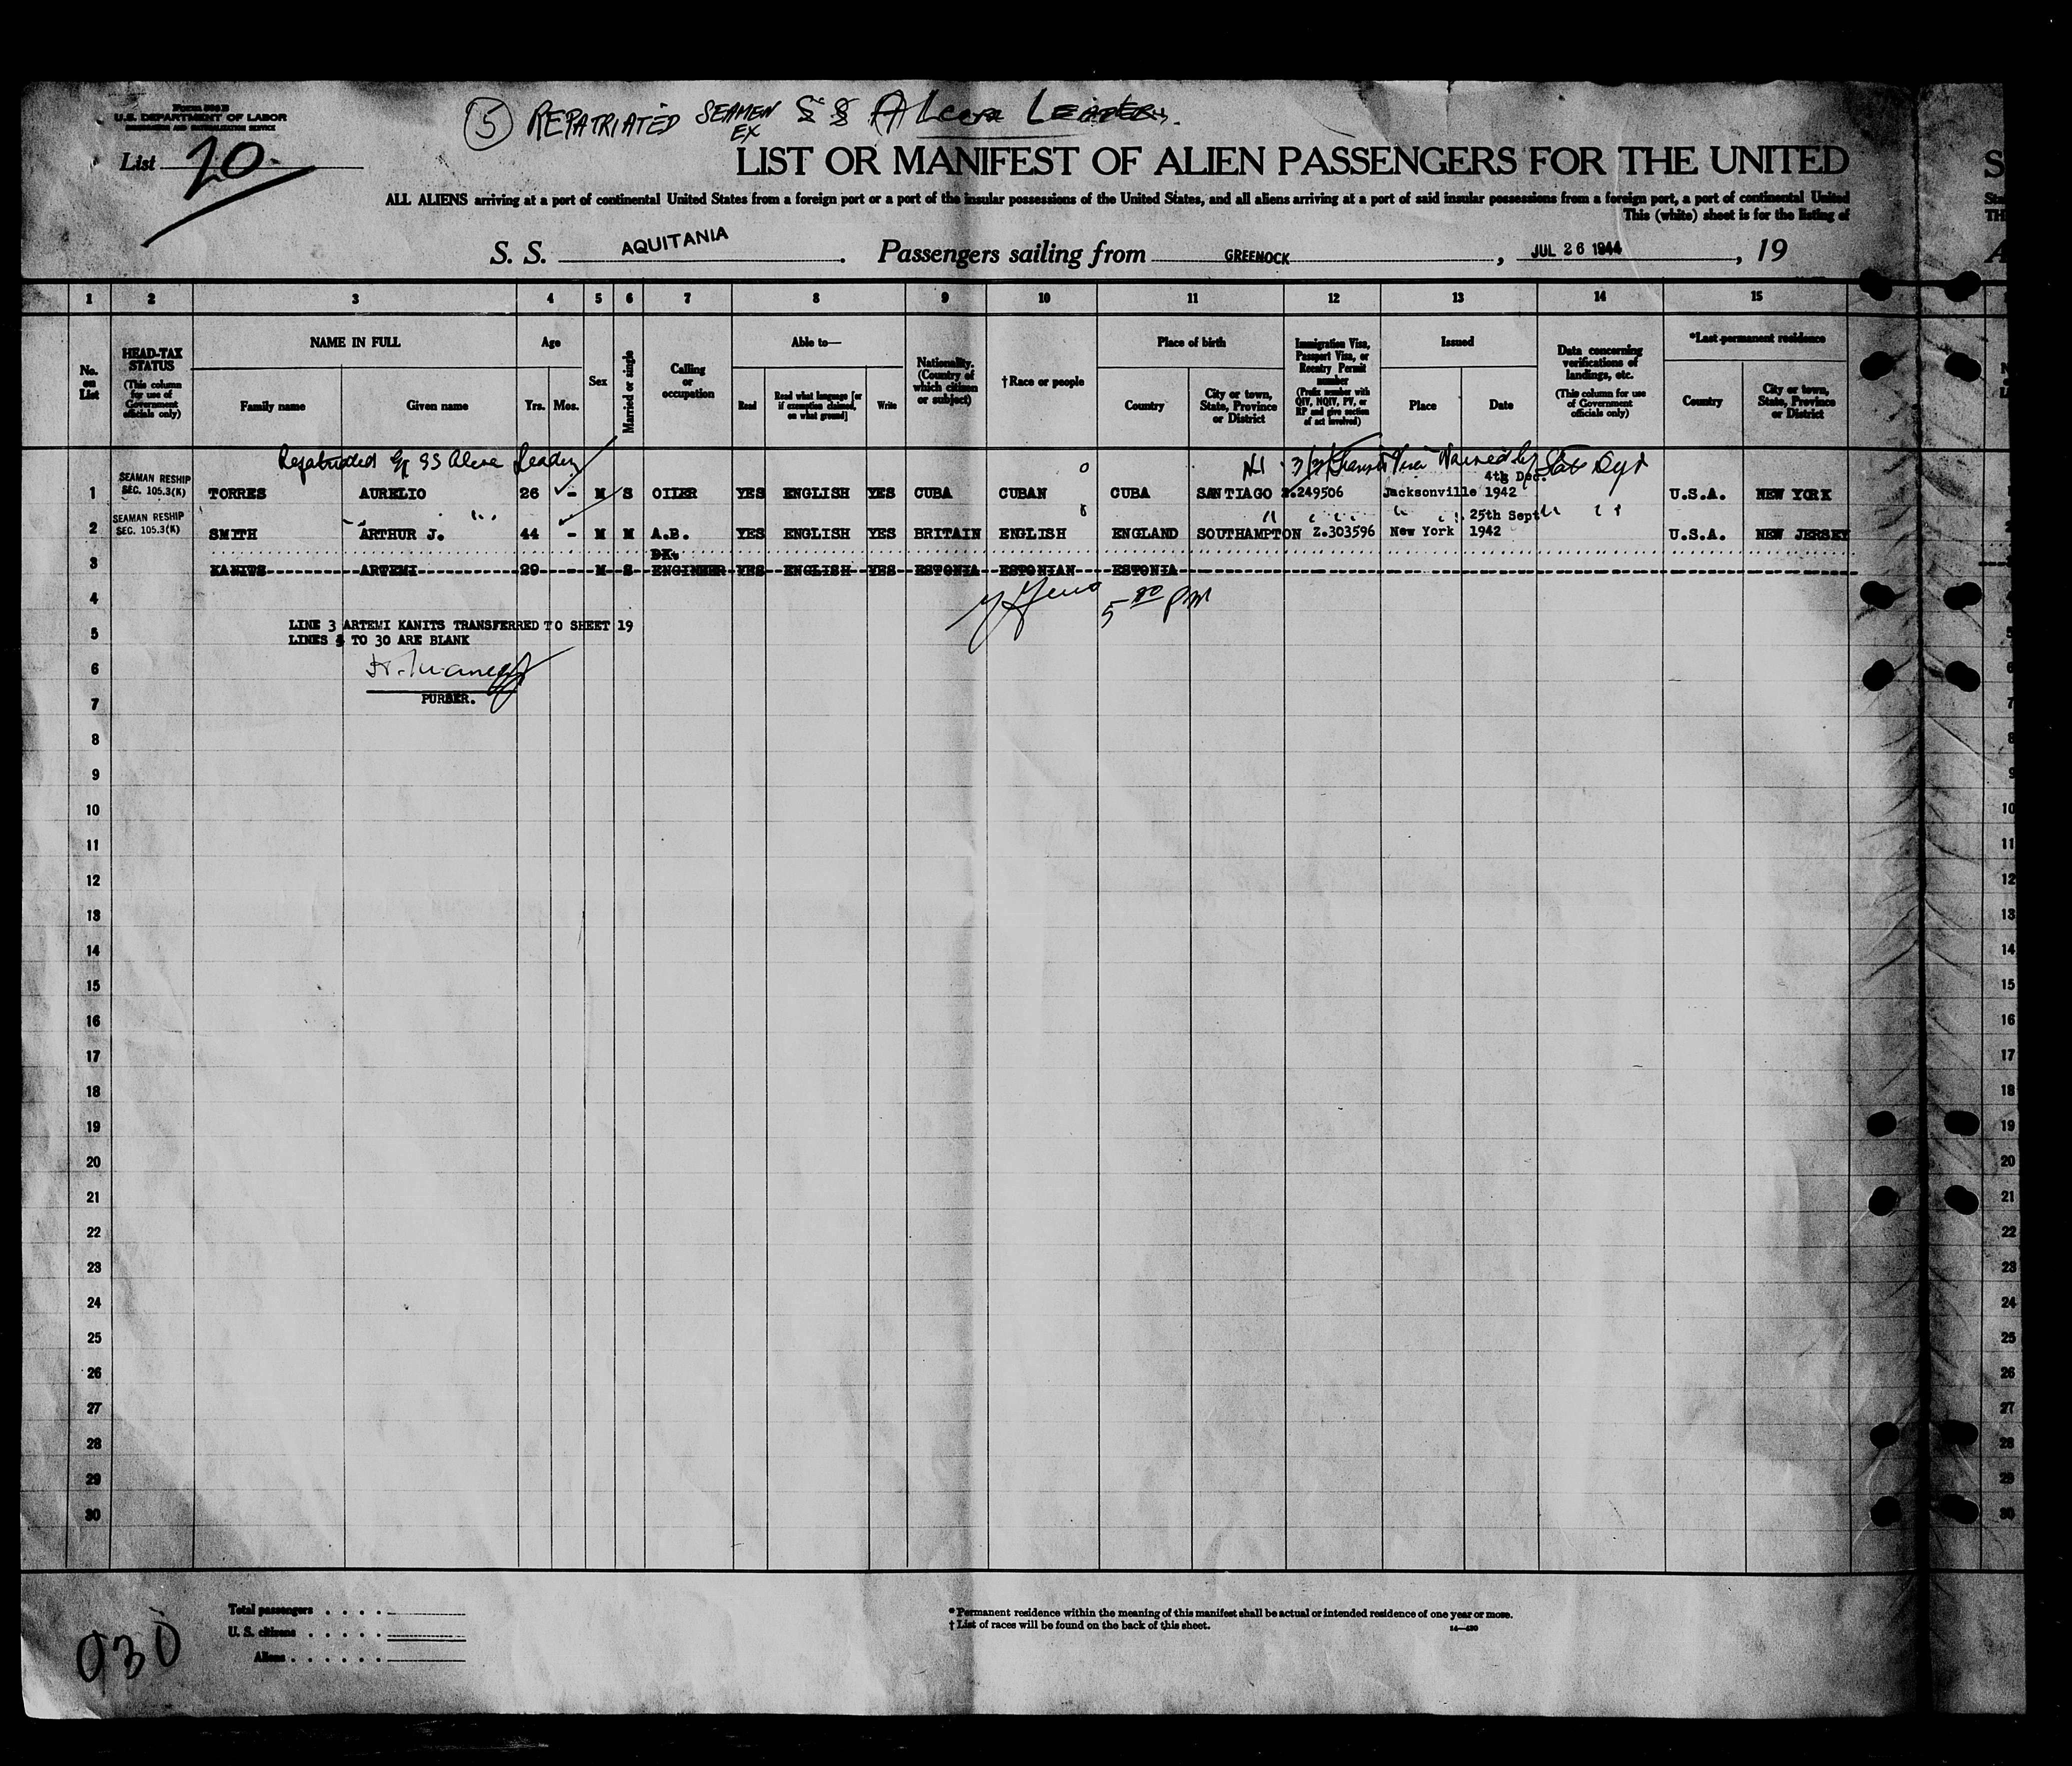 Form 500 B
U.S. DEPARTMENT OF LABOR
IMMIGRATION AND NATURALIZATION SERVICE
(5) REPATRIATED SEAMEN EX SS Alcoa LEADER.
List 20
LIST OR MANIFEST OF ALIEN PASSENGERS FOR THE UNITED
ALL ALIENS arriving at a port of continental United States from a foreign port or a port of the insular possessions of the United States, and all aliens arriving at a port of said insular possessions from a foreign port, a port of continental United
This (white) sheet is for the listing of
S. S. AQUITANIA . Passengers sailing from GREENOCK , JUL 26 1944 , 19
1 2 3 4 5 6 7 8 9 10 11 12 13 14 15
No. on List
HEAD-TAX STATUS (This column for use of Government officials only)
NAME IN FULL
Family name Given name
Age
Yrs. Mos.
Sex
Married or single
Calling or occupation
Able to—
Read Read what language [or if exemption claimed, on what ground] Write
Nationality. (Country of which citizen or subject)
†Race or people
Place of birth
Country City or town, State, Province or District
Immigration Visa, Passport Visa, or Reentry Permit number (Prefix number with QIV, NQIV, PV, or RP and give section of act involved)
Issued
Place Date
Data concerning verifications of landings, etc. (This column for use of Government officials only)
*Last permanent residence
Country City or town, State, Province or District
Repatriated Ex SS Alcoa Leader 3(3) Transit Visa Waived by State Dept
1 SEAMAN RESHIP SEC. 105.3(K) TORRES AURELIO 26 - M S OILER YES ENGLISH YES CUBA CUBAN CUBA SANTIAGO Z.249506 Jacksonville 4th Dec. 1942 U.S.A. NEW YORK
2 SEAMAN RESHIP SEC. 105.3(K) SMITH ARTHUR J. 44 - M M A.B. YES ENGLISH YES BRITAIN ENGLISH ENGLAND SOUTHAMPTON Z.303596 New York 25th Sept 1942 U.S.A. NEW JERSEY
3 KANITS ARTEMI 29 - M S DK. ENGINEER YES ENGLISH YES ESTONIA ESTONIAN ESTONIA
4 5 00 PM
LINE 3 ARTEMI KANITS TRANSFERRED TO SHEET 19
5 LINES 4 TO 30 ARE BLANK
6
PURSER.
7
8
9
10
11
12
13
14
15
16
17
18
19
20
21
22
23
24
25
26
27
28
29
30
Total passengers . . . .
U. S. citizens . . . . .
Aliens . . . . . .
*Permanent residence within the meaning of this manifest shall be actual or intended residence of one year or more.
†List of races will be found on the back of this sheet.
030